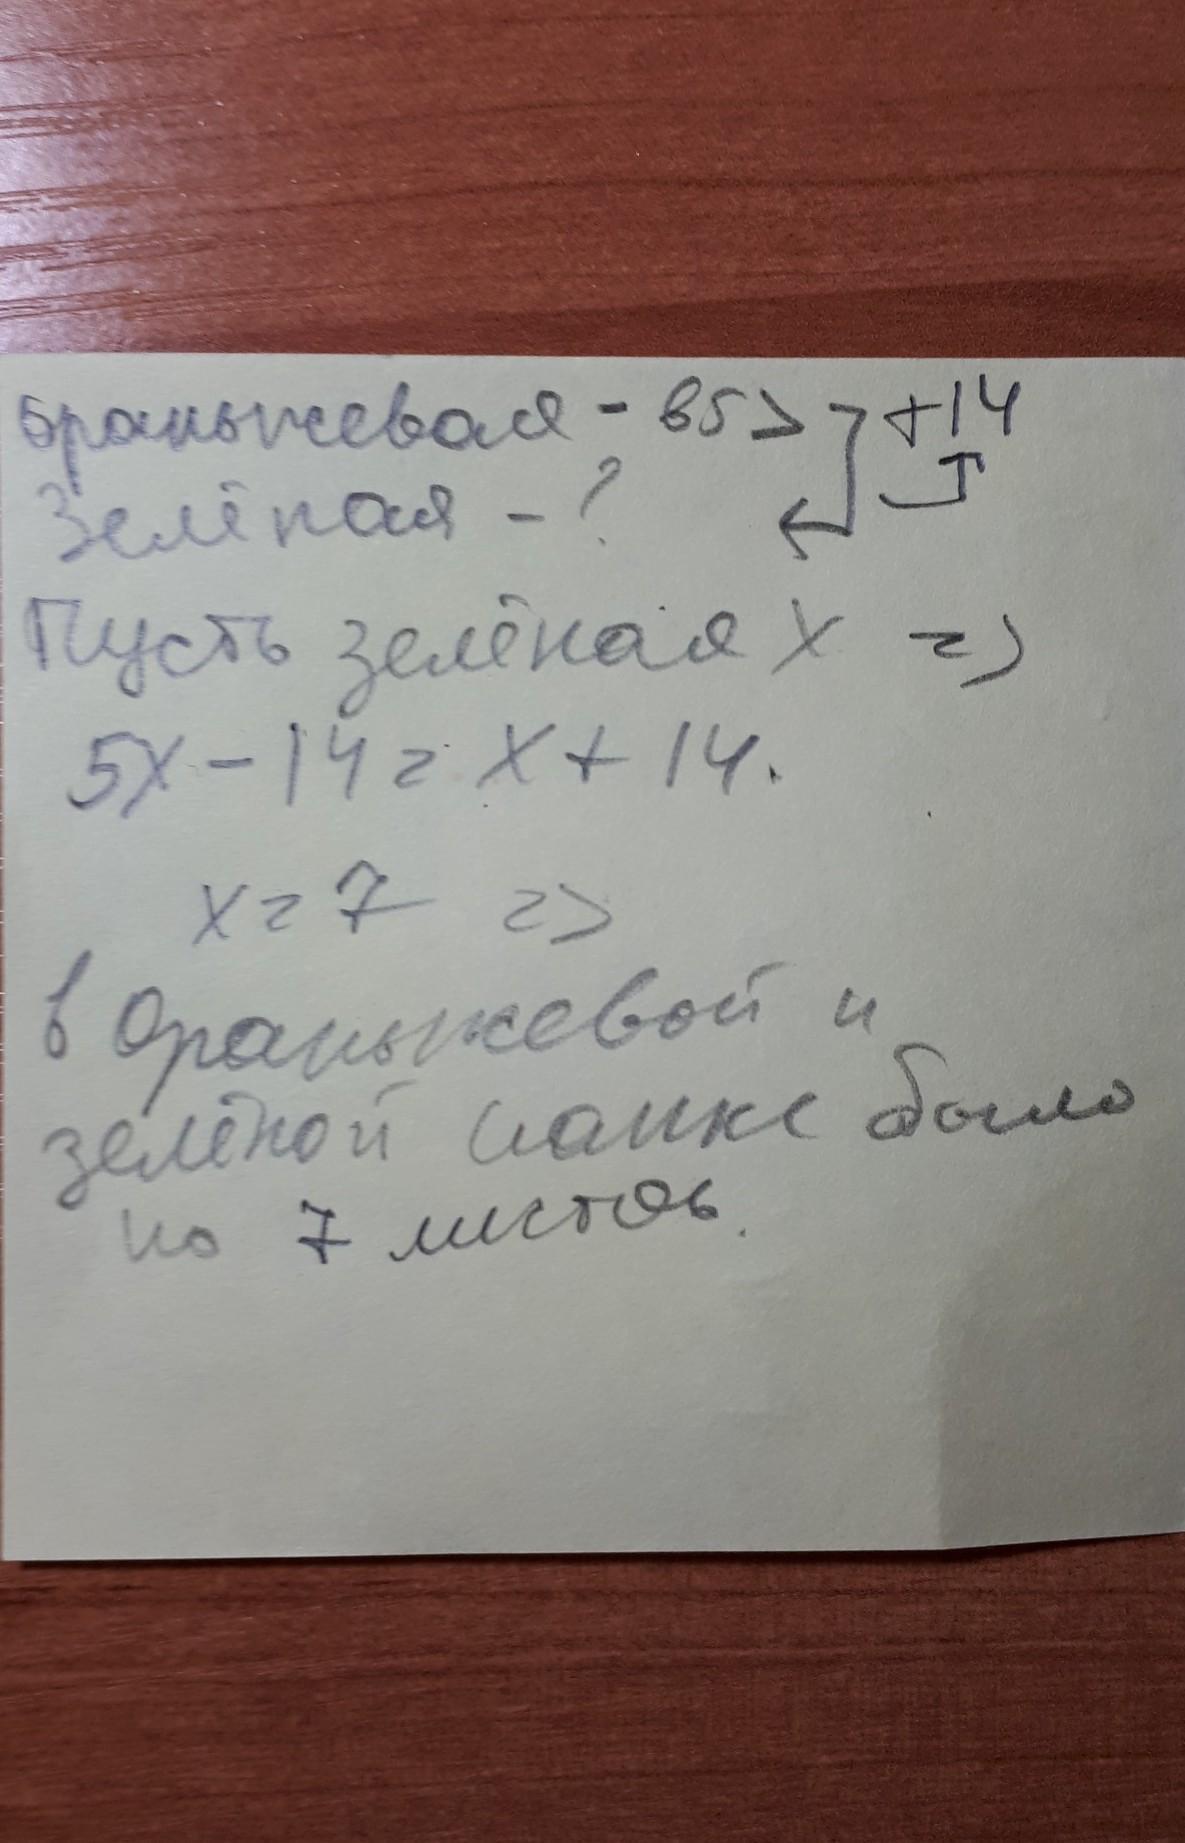 Ораньжевая - в 5 > +14
Зелёная - ?
Пусть зелёная x =>
5x - 14 = x + 14.
x = 7 =>
в Ораньжевой и
зелёной папке было
по 7 листов.